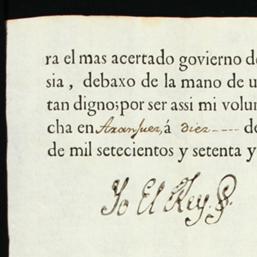 ra el mas acertado govierno de
sia, debaxo de la mano de u
tan digno; por ser assi mi volun
cha en Aranjuez, á diez ---- de
de mil setecientos y setenta y
Yo El Rey.